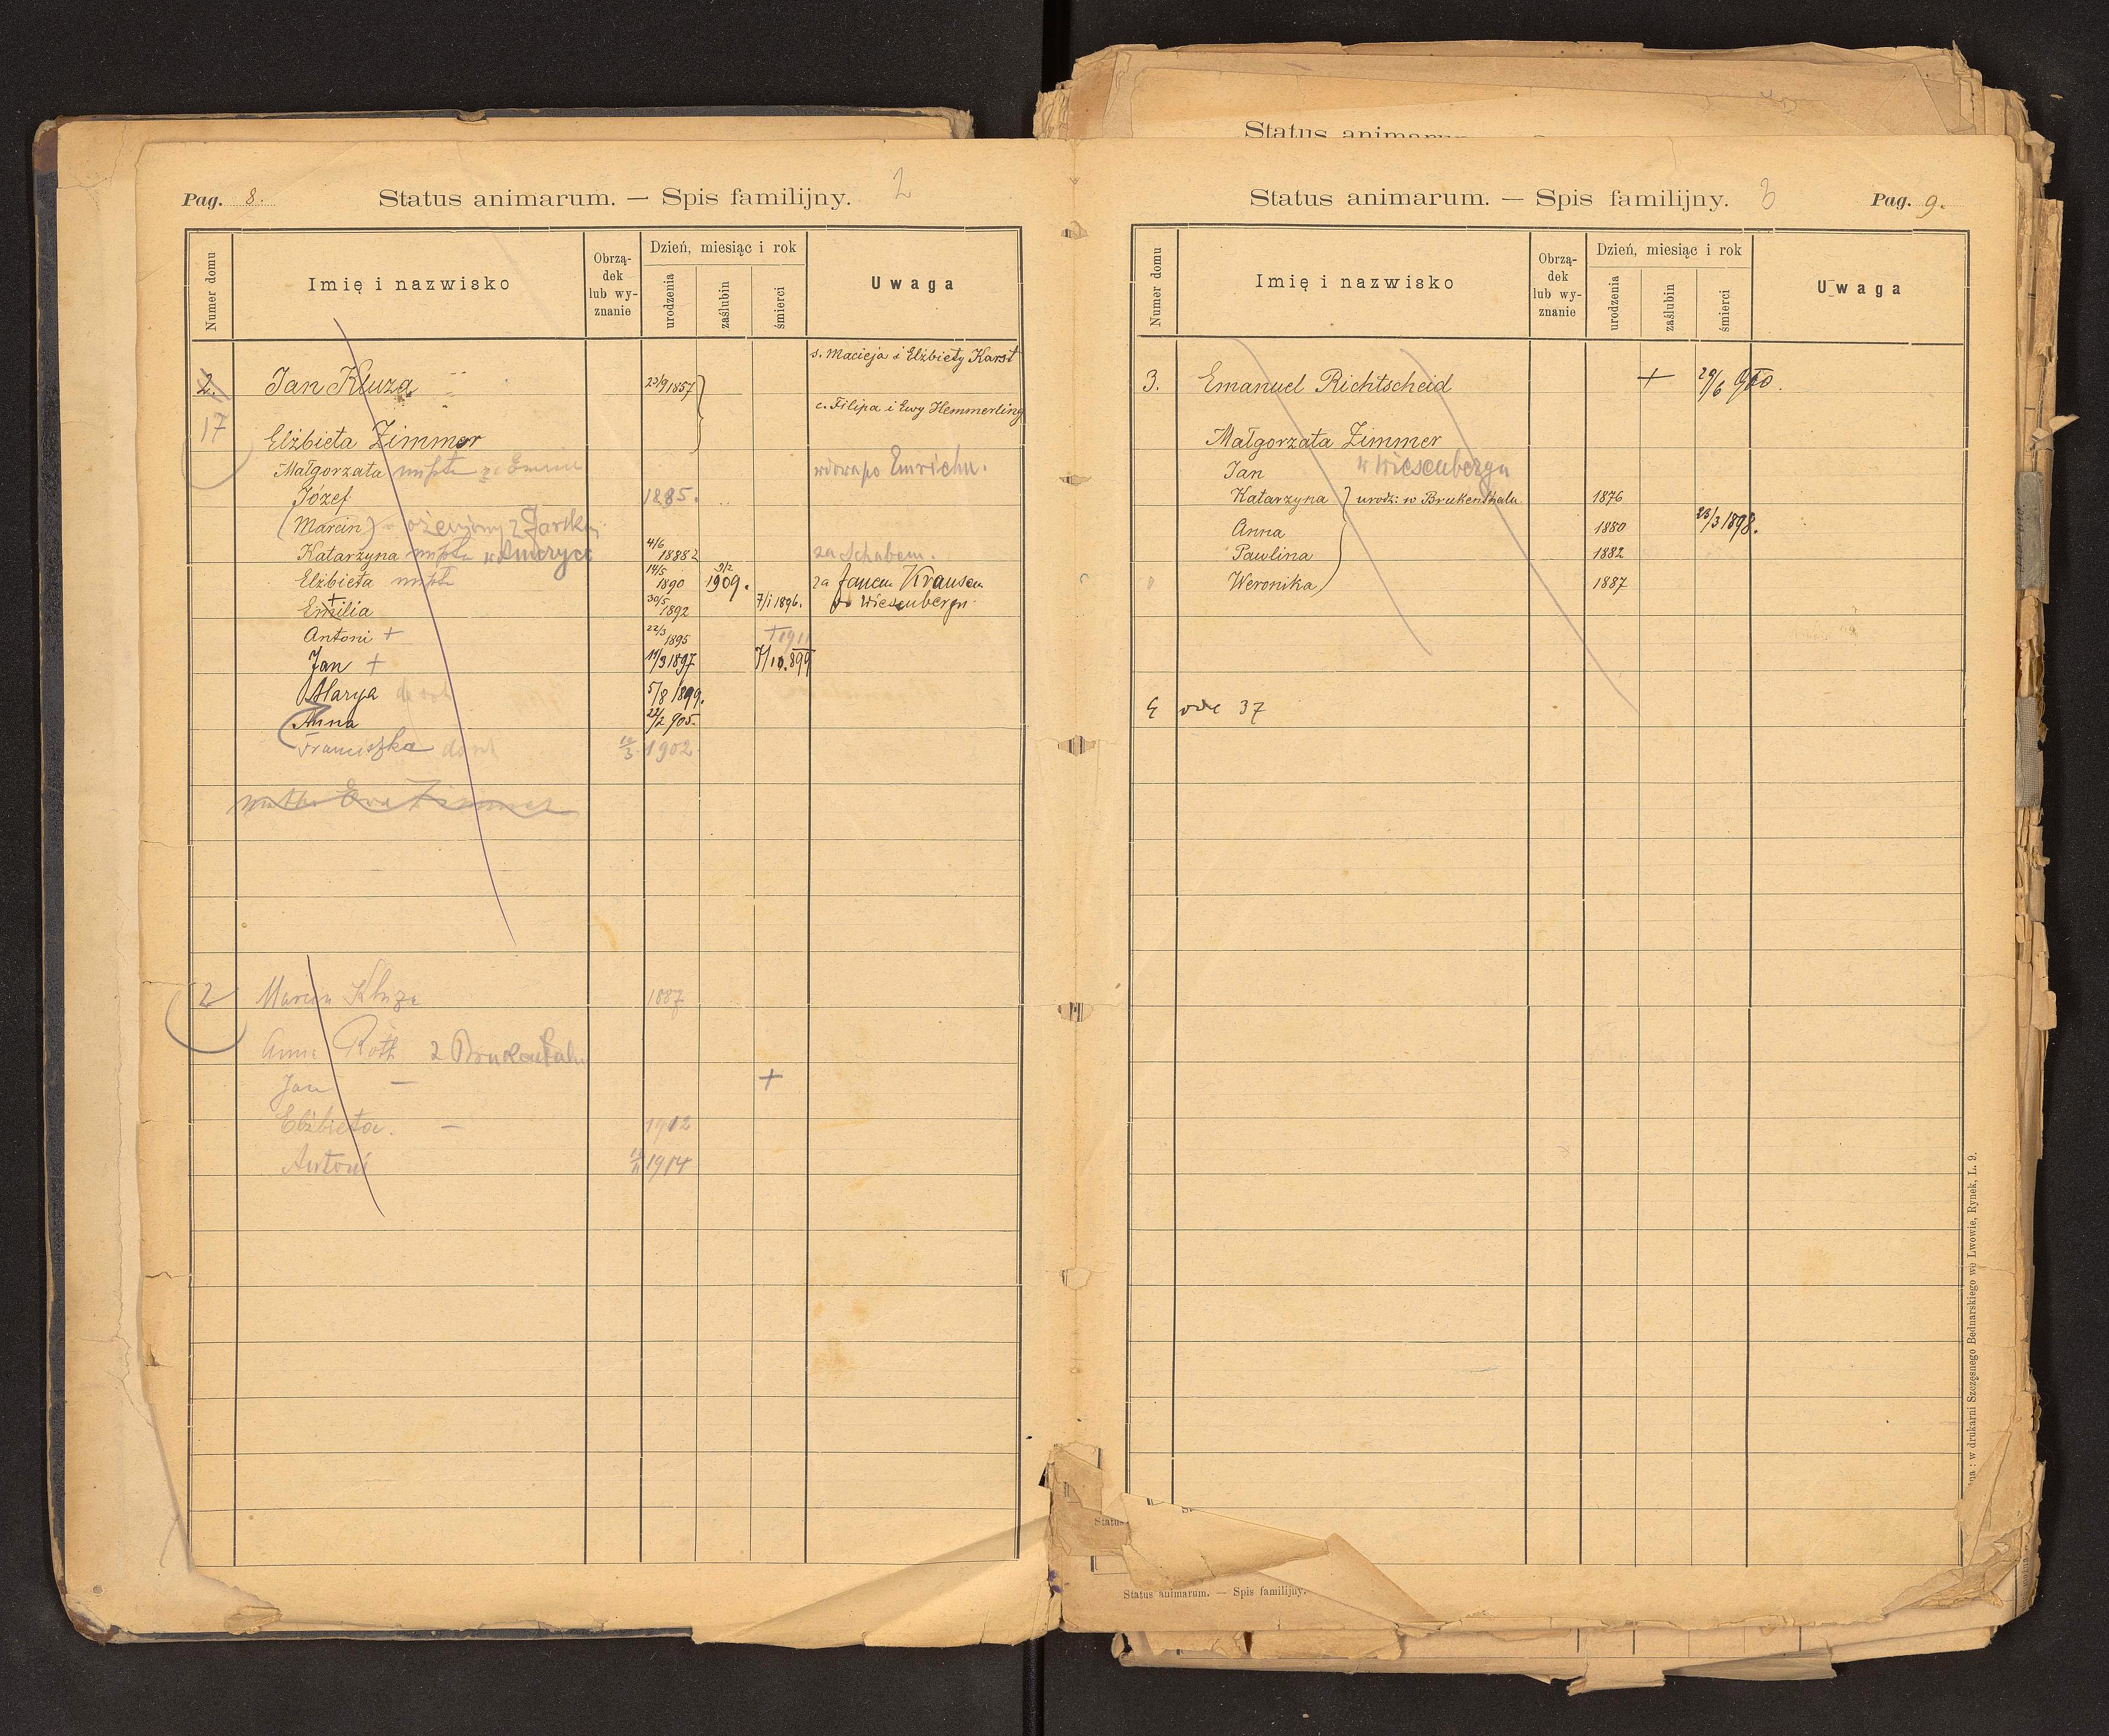 Status animarum
Pag. 8.
Status animarum. — Spis familijny.
2
Numer domu
Imię i nazwisko
Obrzą-
dek
lub wy-
znanie
Dzień, miesiąc i rok
urodzenia
zaślubin
śmierci
Uwaga
s. Macieja i Elżbiety Karst
2. Jan Kluza 23/9 1857
17
c. Filipa i Ewy Hemmerling
Elżbieta Zimmer
Małgorzata wdowa po Emrichu.
Józef 1885.
(Marcin) ożeniony z
Katarzyna w Ameryce 4/6 1888 za Schabem.
Elżbieta 14/5 1890 9/2 1909. za Janem Krausem
Emilia + 30/5 1892 7/1 1896. w Wiesenbergu
Antoni + 22/3 1895 +1911
Jan + 11/3 1897 7/10.899
Marya 5/8 1899.
Anna 22/2 905.
Franciszka 10/3 1902.
Ewa Zimmer
2 Marcin Kluza 1887
Anna Roth z Brukentalu
Jan — +
Elżbieta. — 1912
Antoni 1914
Status animarum. — Spis familijny.
3
Pag. 9.
Numer domu
Imię i nazwisko
Obrzą-
dek
lub wy-
znanie
Dzień, miesiąc i rok
urodzenia
zaślubin
śmierci
Uwaga
3. Emanuel Richtscheid + 29/6 910.
Małgorzata Zimmer
Jan w Wiesenbergu
Katarzyna } urodz: w Brukenthalu 1876
Anna 1880 23/3 1898.
Paulina 1882
Weronika 1887
37
na : w drukarni Szczęsnego Bednarskiego we Lwowie, Rynek, L. 9.
Status
Status animarum. — Spis familijny.